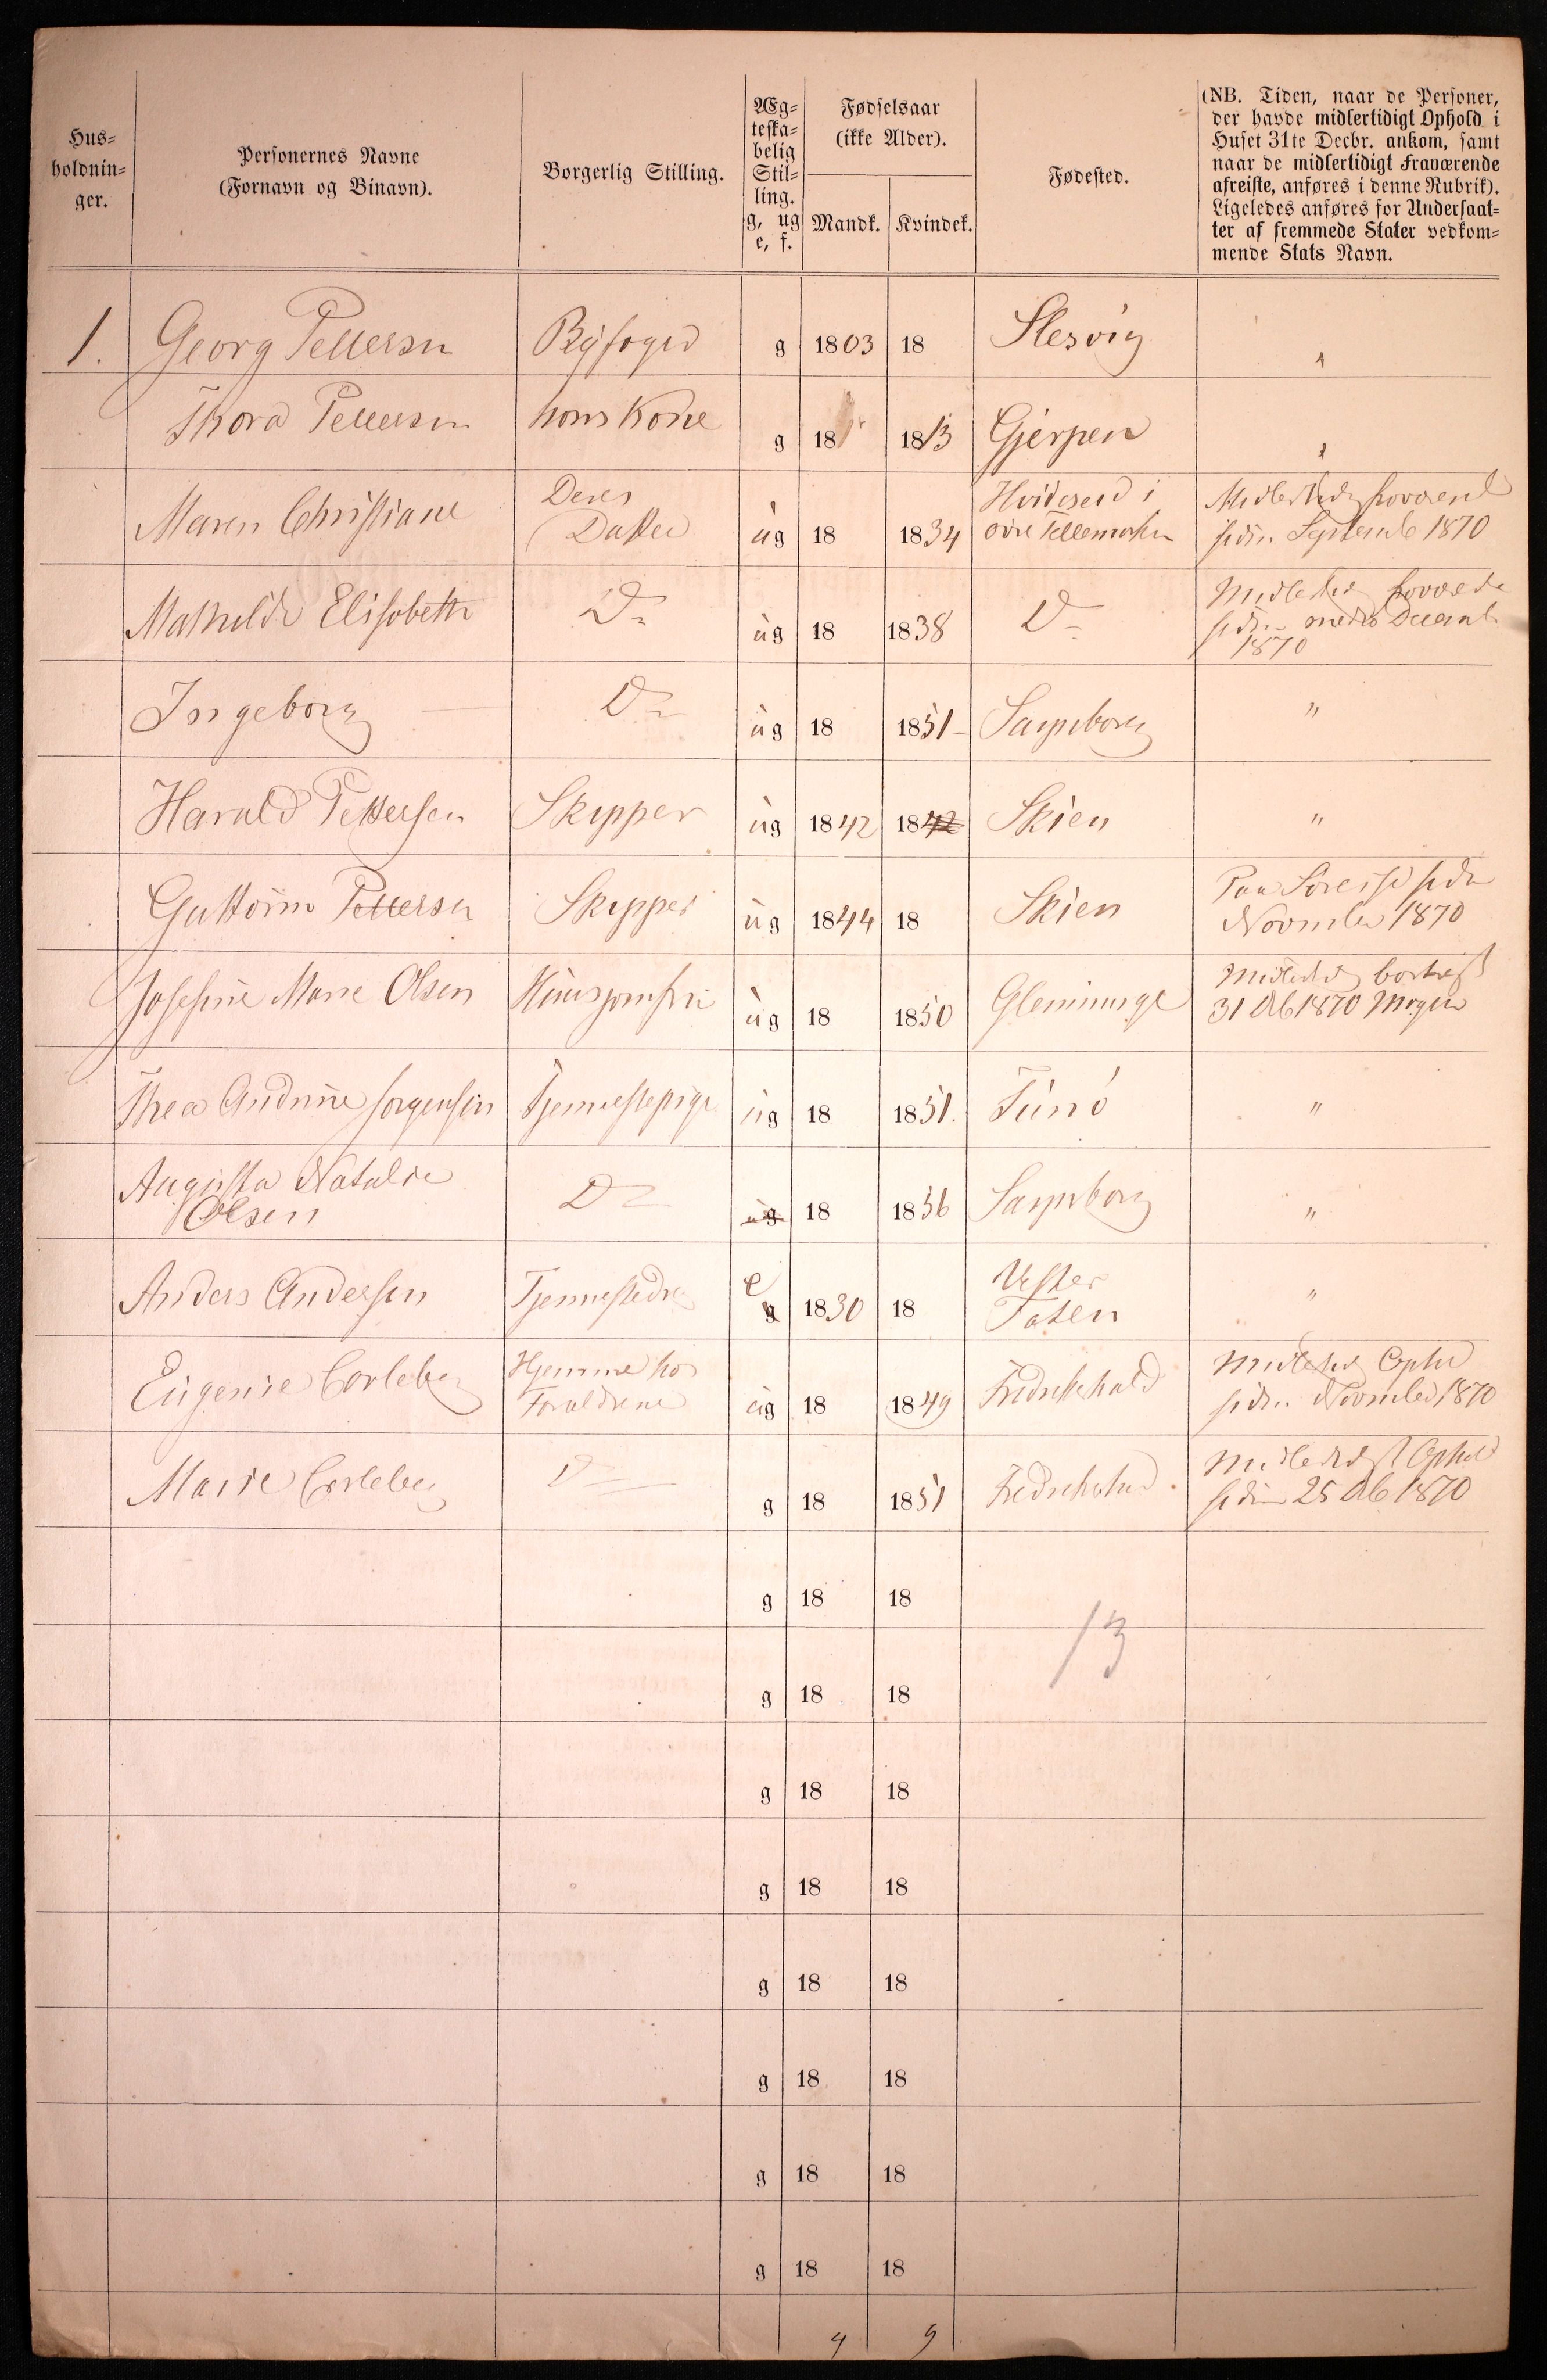 Hus=
holdnin=
ger.
Personernes Navne
(Fornavn og Binavn).
Borgerlig Stilling.
Æg=
teska=
belig
Stil=
ling.
g, ug
e, f.
Fødselsaar
(ikke Alder).
Mandk. Kvindek.
Fødested.
(NB. Tiden, naar de Personer,
der havde midlertidigt Ophold i
Huset 31te Decbr. ankom, samt
naar de midlertidigt Fraværende
afreiste, anføres i denne Rubrik).
Ligeledes anføres for Undersaat=
ter af fremmede Stater vedkom=
mende Stats Navn.
1. Georg Pettersen Byfoged g 1803 18 Slesvig "
Thora Pettersen hans Kone g 18 1813 Gjerpen "
Maren Christiane Deres Datter ug 18 1834 Hvideseid i
øvre Tellemarken
siden September 1870
Mathilde Elisabeth Do ug 18 1838 Do
siden medio Decemb
1870
Ingeborg Do ug 18 1851 Sarpsborg "
Harald Pettersen Skipper ug 1842 1842 Skien "
Guttorm Pettersen Skipper ug 1844 18 Skien
November 1870
Josefine Marie Olsen Huusjomfru ug 18 1850 Glemminge
31 Decb 1870 Morgen
Thea Andrine Jørgensen Tjenestepige ug 18 1851. Tunø "
Augusta Natalie
Olsen Do ug 18 1856 Sarpsborg "
Anders Andersen Tjenestedreng e g 1830 18 Vester
Toten "
Eugenie Corleberg Hjemme hos
Forældrene ug 18 1849 Fredrikshald
Midlertid Ophold
siden November 1870
Marie Corleberg Do g 18 1851 Fredrikshald
Midlertidigt Ophold
siden 25 Decb 1870
g 18 18
13
g 18 18
g 18 18
g 18 18
g 18 18
g 18 18
g 18 18
g 18 18
4 9